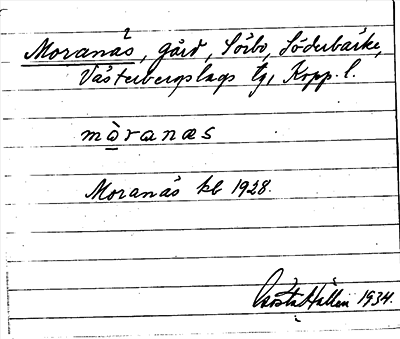 Moranäs, gård, Sörbo, Söderbärke,
Västerbergslags tg, Kopp. l.
mòranæs
Moranäs kb 1928.
Gösta Hallen 1934.